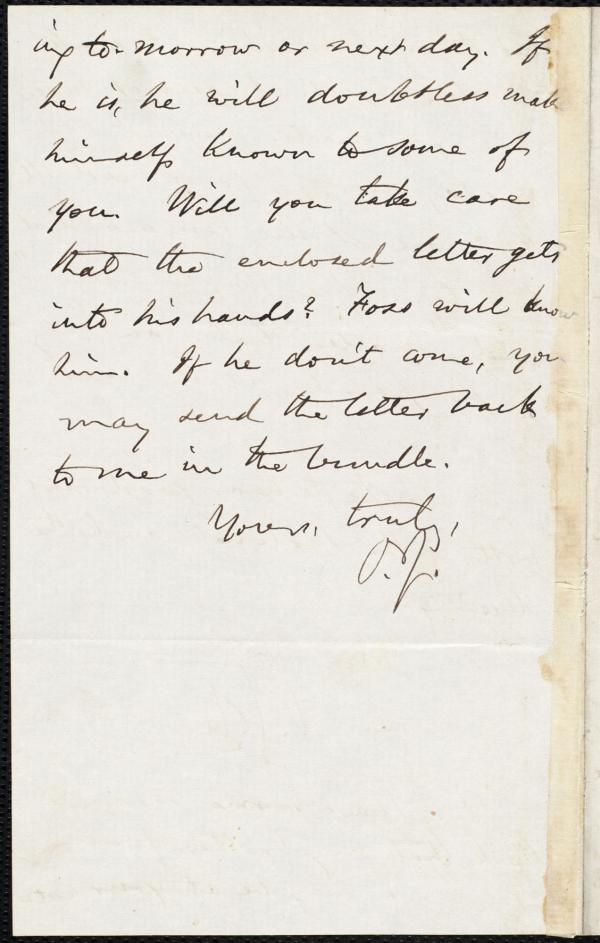 ing to-morrow or next day. If
he is, he will doubtless make
himself known to some of
you. Will you take care
that the enclosed letter gets
into his hands? Foss will know
him. If he don't come, you
may send the letter back
to me in the bundle.
Yours, truly,
O. J.